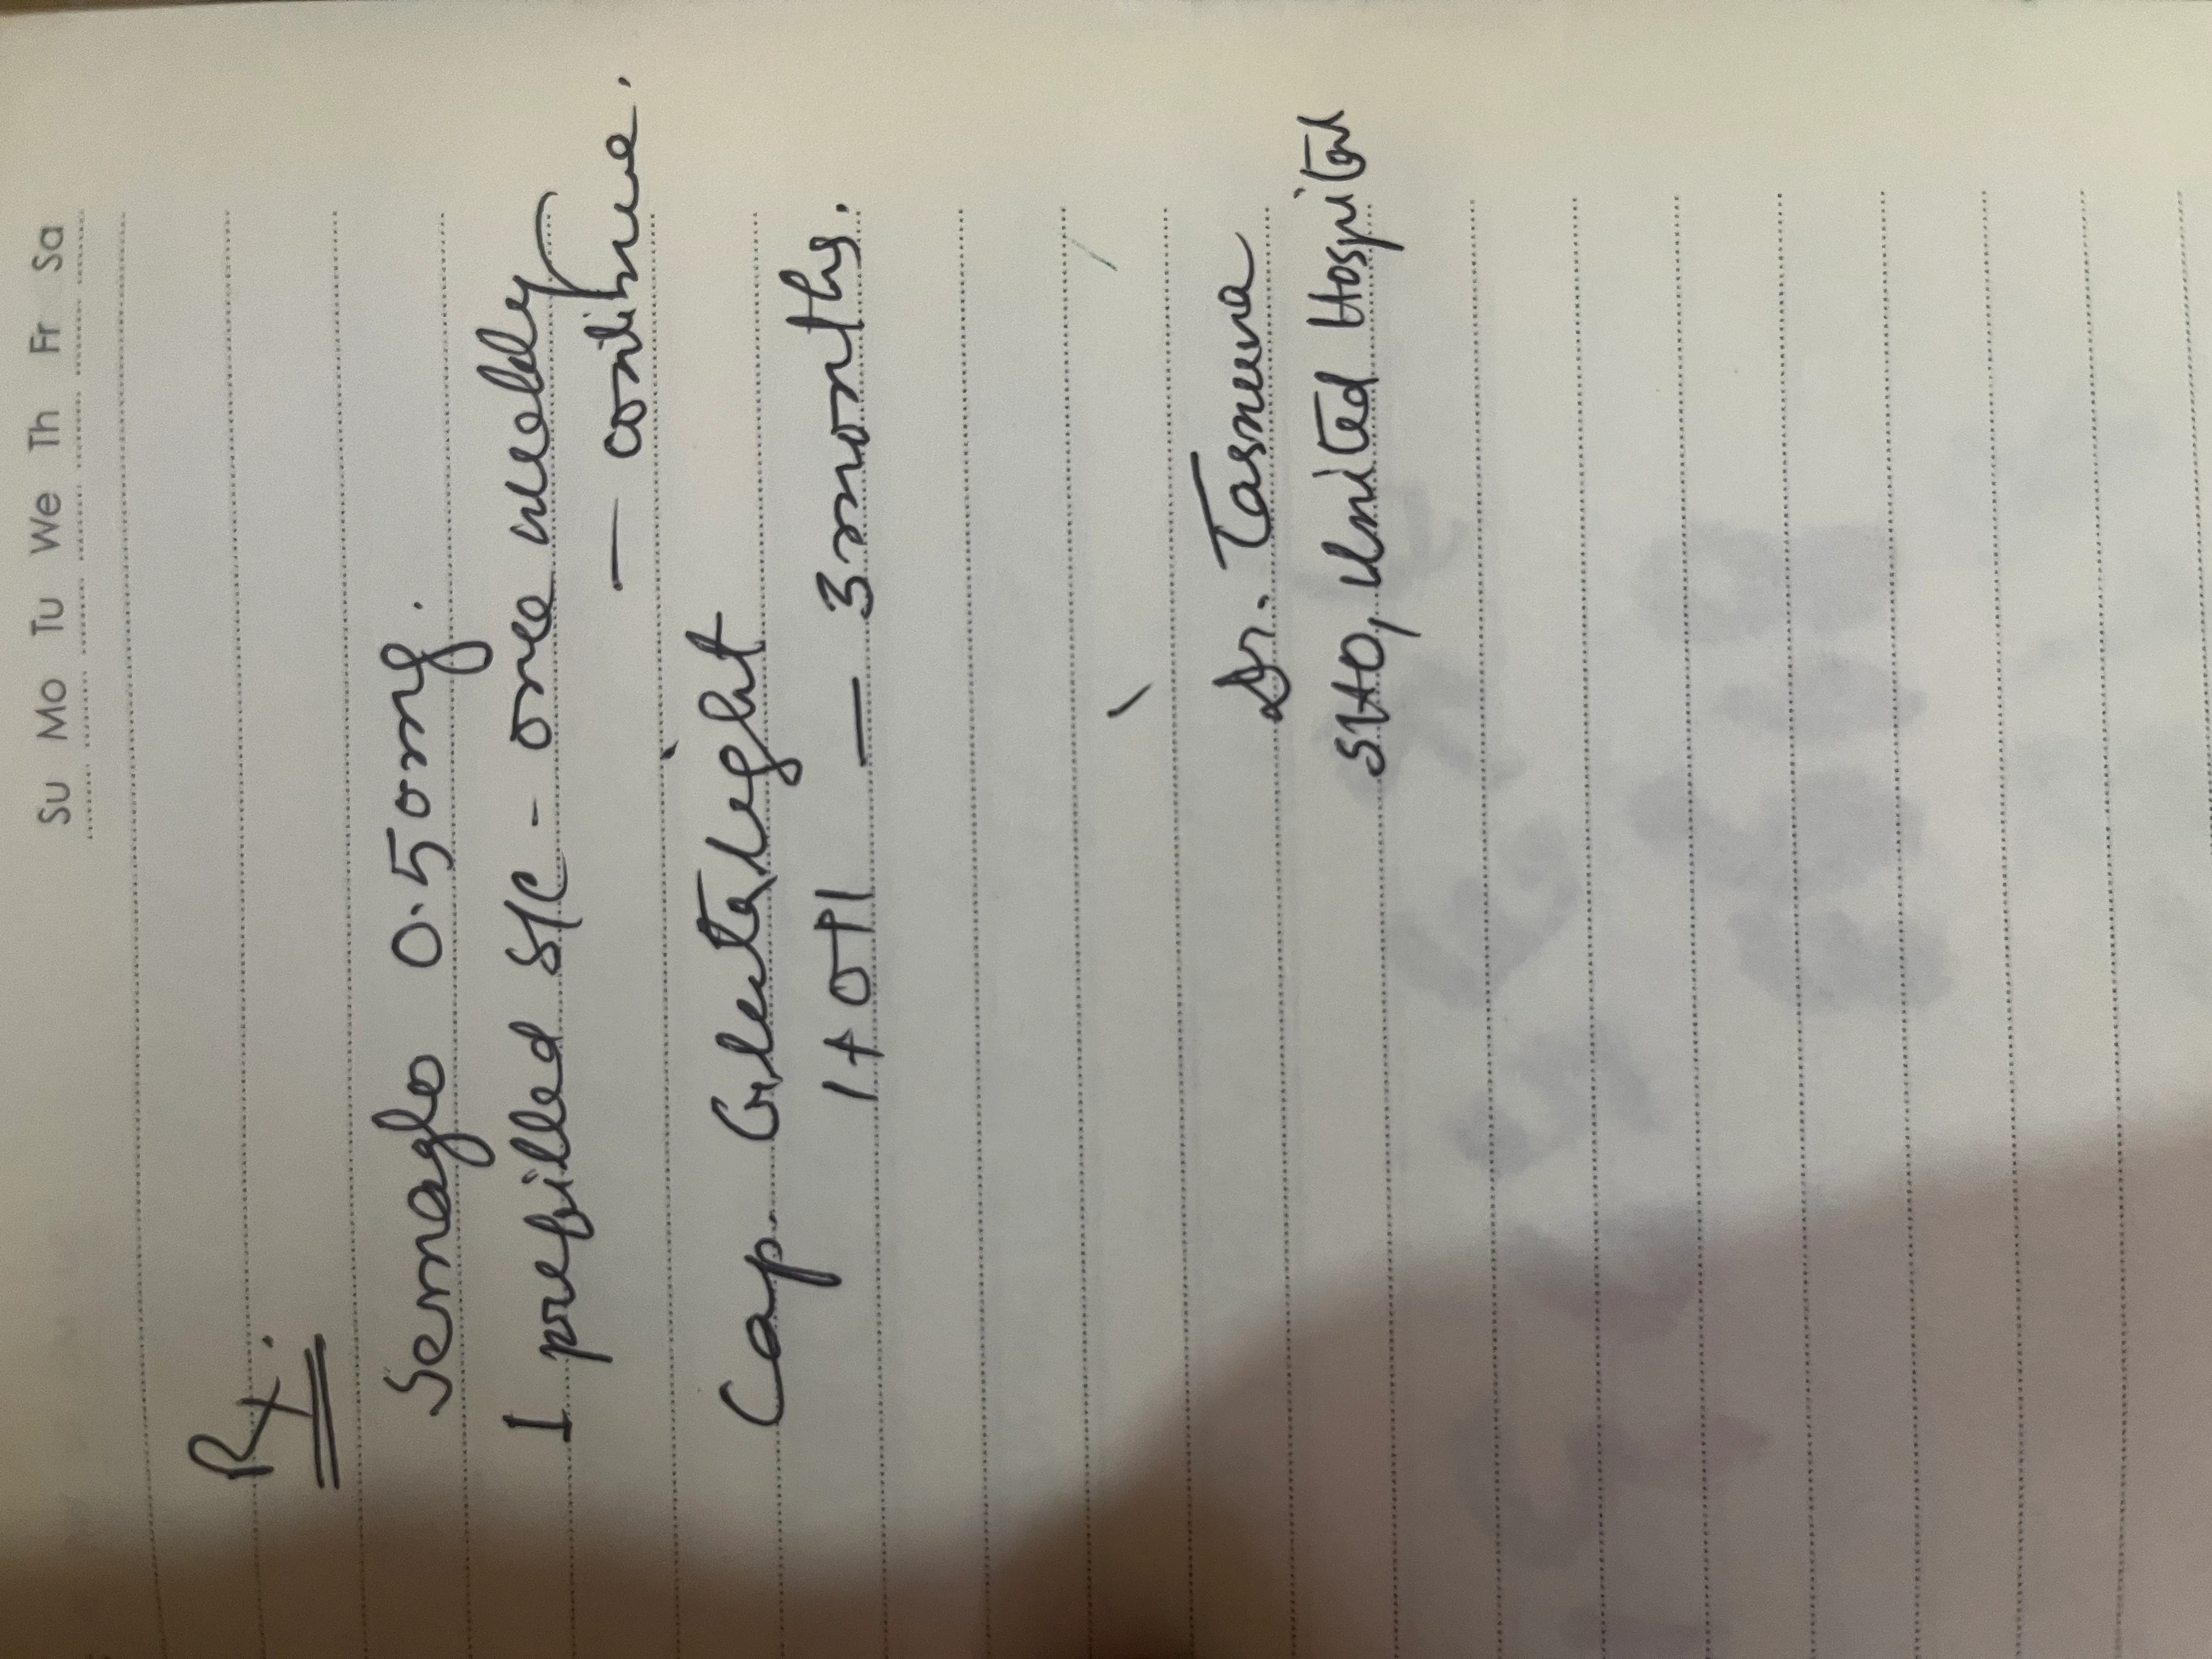 Su Mo Tu We Th Fr Sa
Rx.
Semaglo 0.50mg.
1 prefilled S/C - once weekly
— continue.
Cap. Glutalight
1+0+1 — 3 months.
Dr. Tasnuva
SHO, United Hospital